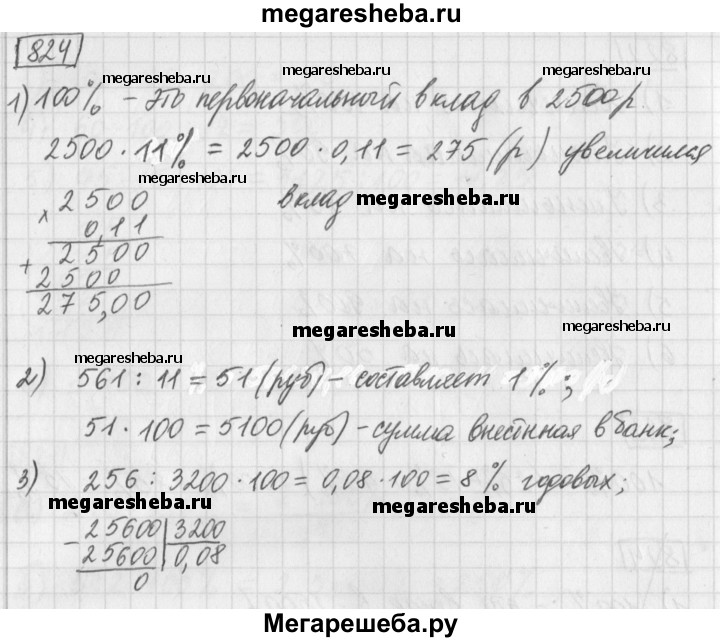 megaresheba.ru
824
megaresheba.ru megaresheba.ru
1) 100% - это первоначальный вклад в 2500 р.
2500 · 11% = 2500 · 0,11 = 275 (р) увеличился
megaresheba.ru
вклад megaresheba.ru
× 2500
0,11
+ 2500
2500
275,00
megaresheba.ru
megaresheba.ru
megaresheba.ru
2) 561 : 11 = 51 (руб) - составляет 1%;
51 · 100 = 5100 (руб) - сумма внесённая в банк;
megaresheba.ru megaresheba.ru
3) 256 : 3200 · 100 = 0,08 · 100 = 8% годовых;
megaresheba.ru megaresheba.ru
- 25600 | 3200
25600 | 0,08
0
Мегарешеба.ру